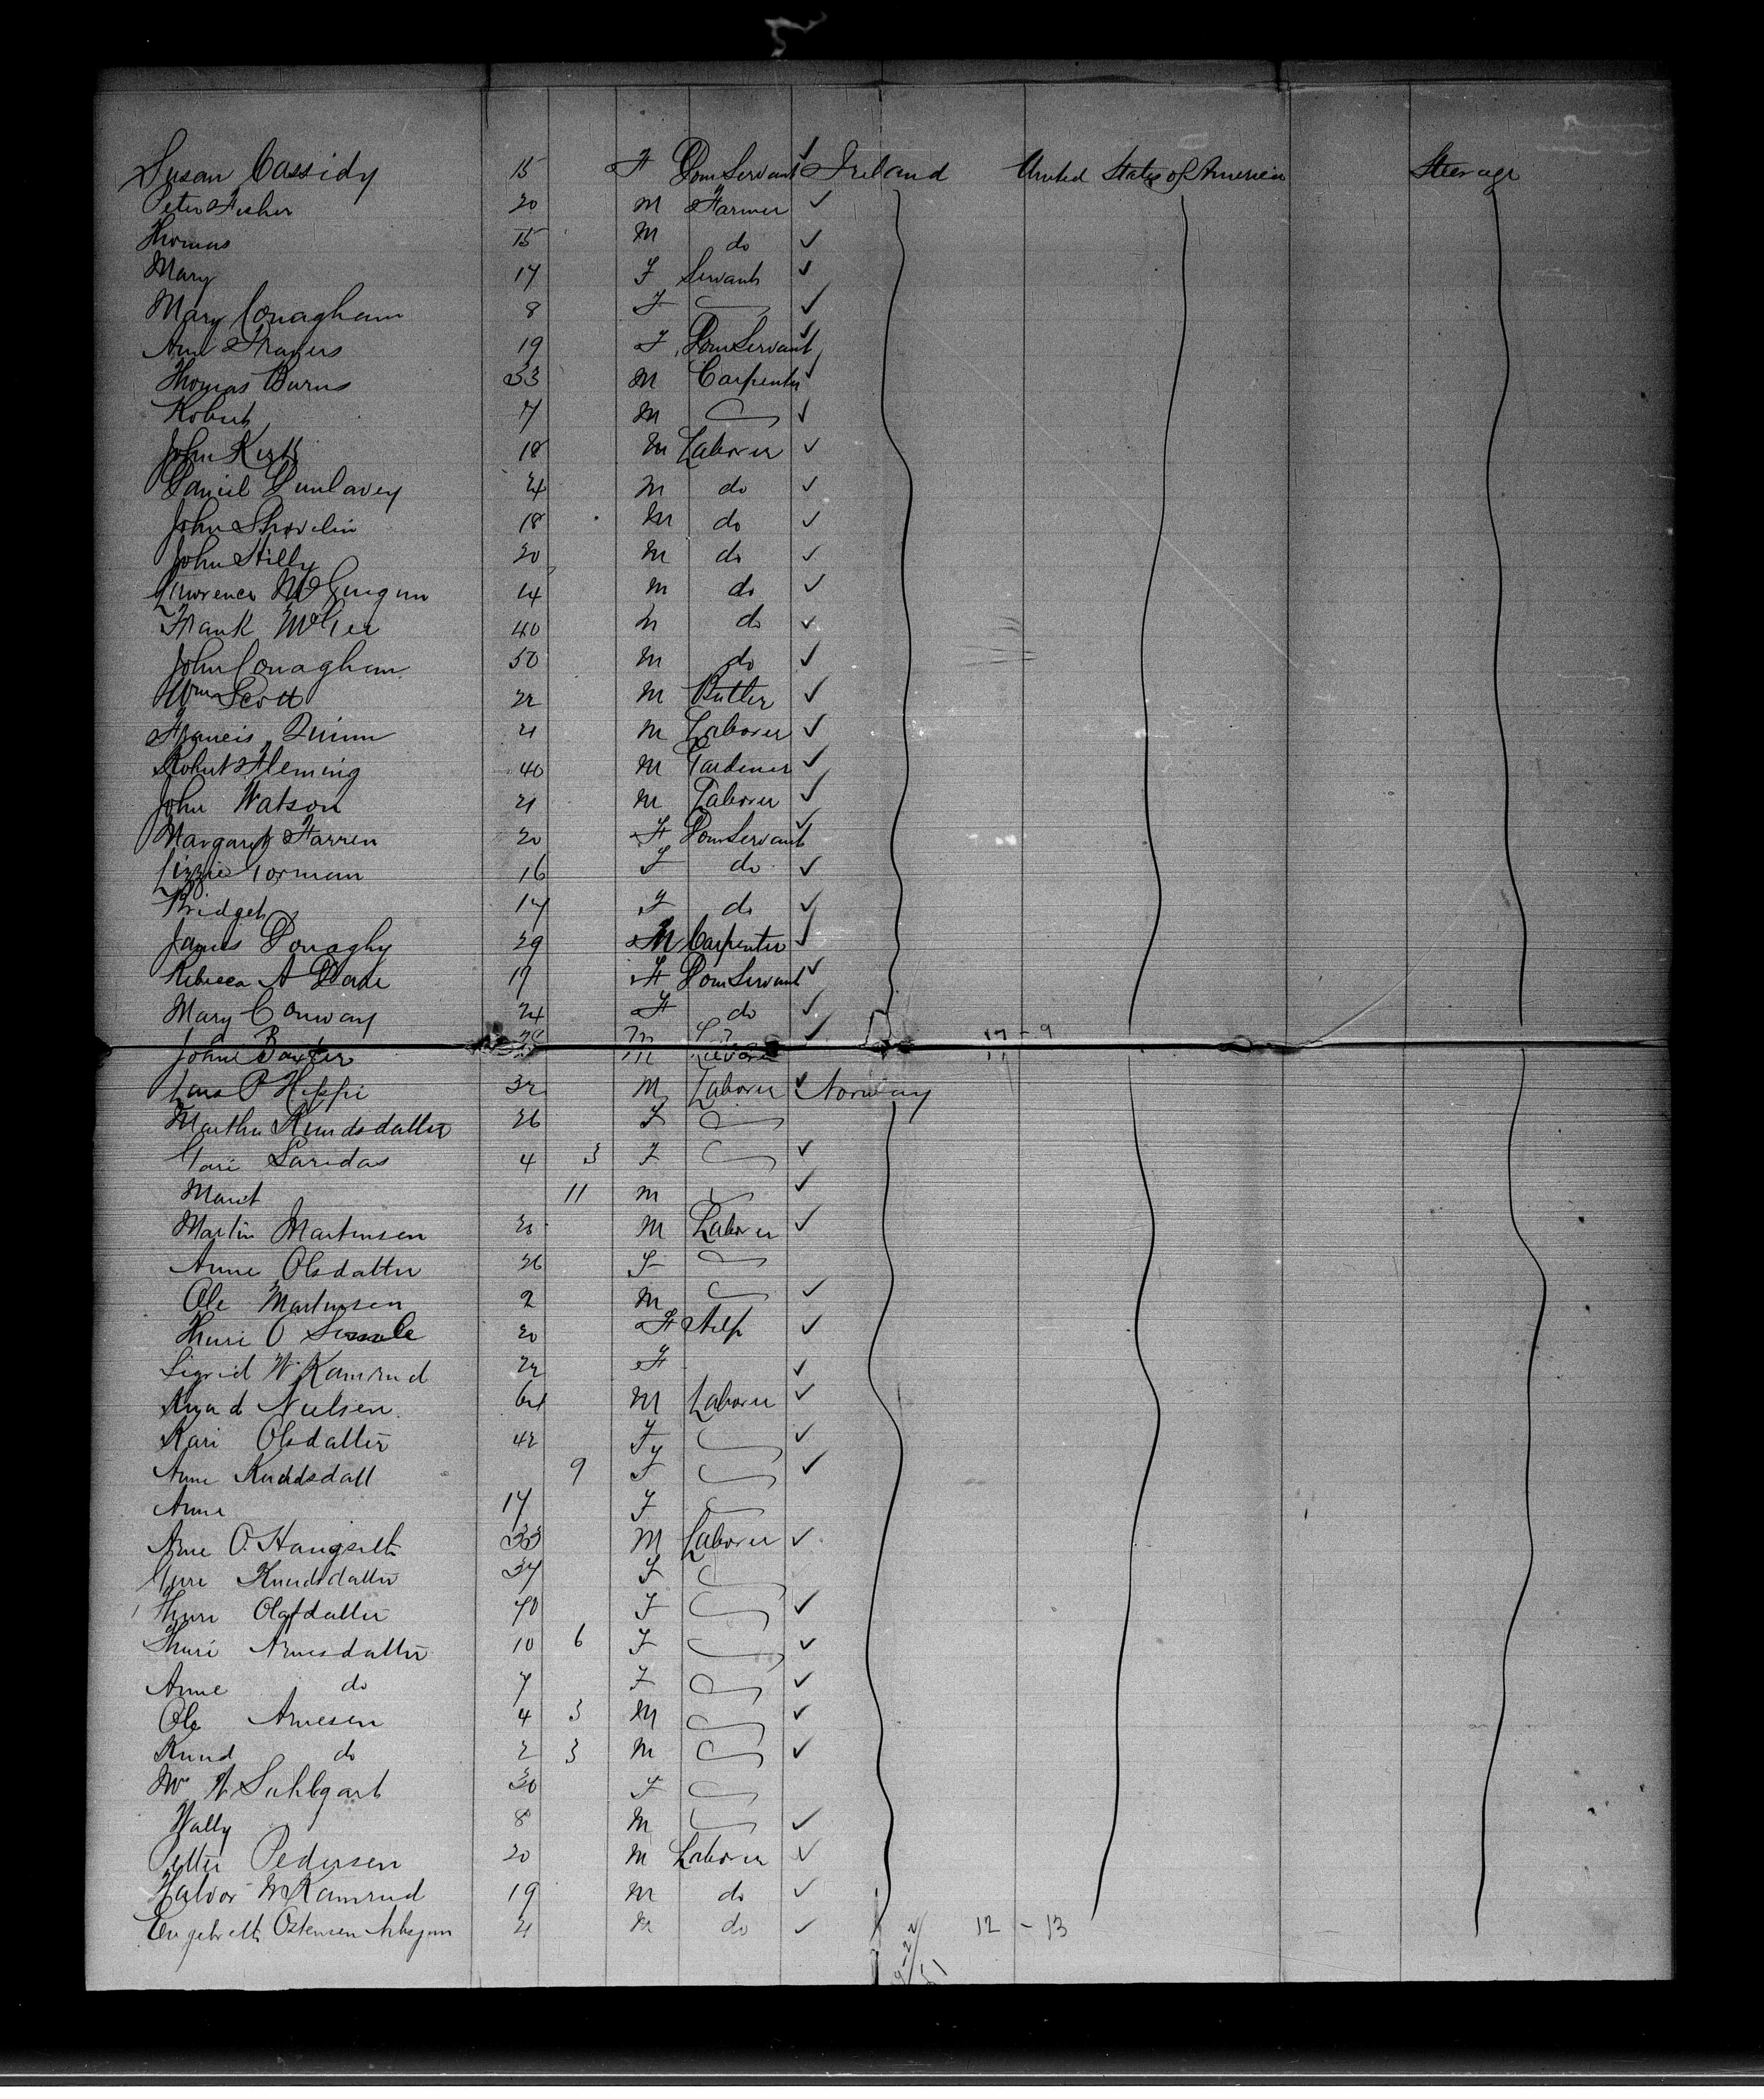 5
Susan Cassidy 15 F Dom Servant Ireland United States of America Steerage
Peter Fisher 20 M Farmer
Thomas 15 M do
Mary 17 F Servant
Mary Conagham 8 F
Ann 19 F Dom Servant
Thomas Burns 33 M Carpenter
Robert 7 M
John Kirk 18 M Laborer
Daniel Dunlavey 24 M do
John Shovelin 18 M do
John Hilly 20 M do
Lawrence 14 M do
Frank McGee 40 M do
John Conagham 50 M do
Wm Scott 22 M Butler
Francis Quinn 21 M Laborer
Robert Fleming 40 M Gardener
John Watson 21 M Laborer
Margaret Farren 20 F Dom Servant
Lizzie Gorman 16 F do
Bridget 17 F do
James Donaghy 29 M Carpenter
Rebecca A 17 F Dom Servant
Mary Conway 24 F do
John Baxter M 17 - 9
Lars P 32 M Laborer Norway
Martha Knudsdatter 26 F
4 3 F
Marit 11 M
Martin Martinsen M Laborer
Anne Olsdatter 26 F
Ole Martinsen 2 M
Thuri O 20 F Help
Sigrid W Kamrud 22 F
Nielsen 64 M Laborer
Kari Olsdatter 42 F
Anne Knudsdatt 9 F
Anne 17 F
Arne O. 33 M Laborer
Guri Knudsdatter 37 F
Thuri Olafdatter 70 F
Thuri Arnesdatter 10 6 F
Anne do 7 F
Ole Arnesen 4 3 M
Knud do 2 3 M
30 F
Wally 8 M
Petter Pedersen 20 M Laborer
Halvor Kamrud 19 M do
Engebrett Ostensen 21 M do 12 - 13